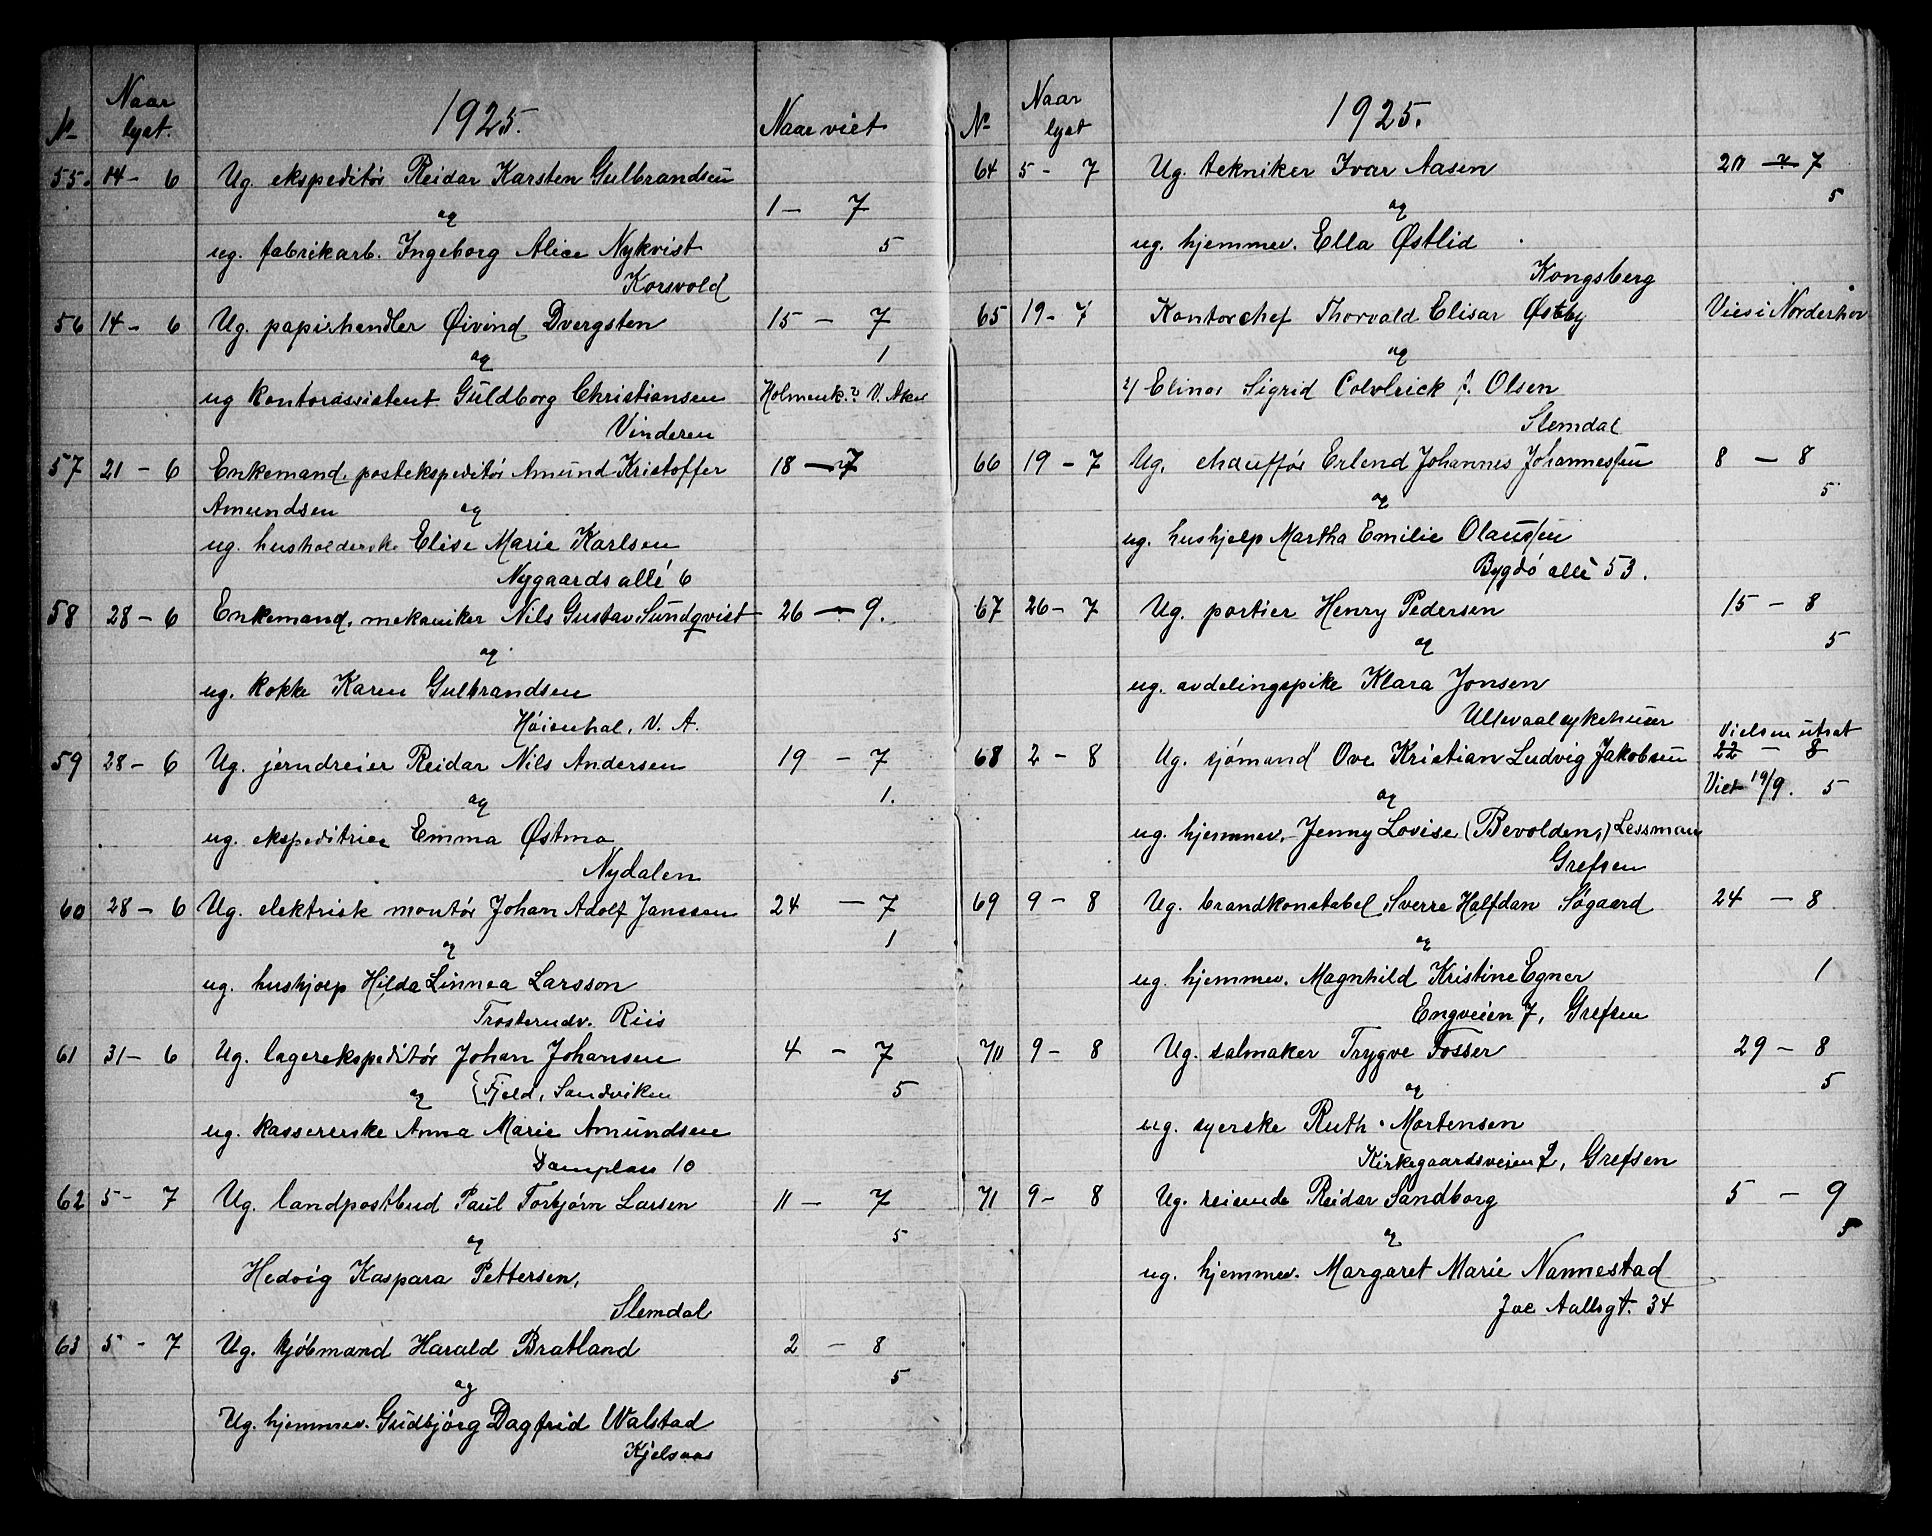 No Naar lyst. 1925. Naar viet
55. 14 - 6 Ug. ekspeditör Reidar Karsten Gulbrandsen
og 1 - 7
ug. fabrikarb. Ingeborg Alice Nykvist 5
Korsvold
56 14 - 6 Ug. papirhandler Öivind Dvergsten 15 - 7
og 1
ug kontorassistent Guldborg Christiansen Holmenk. V. Aker
Vinderen
57 21 - 6 Enkemand, postekspeditör Amund Kristoffer 18 - 7
Amundsen og
ug. husholderske Elise Marie Karlsen
Nygaards allé 6
58 28 - 6 Enkemand, mekaniker Nils Gustav Sundqvist 26 - 9.
og
ug. kokke Karen Gulbrandsen
Höienhal, V. A.
59 28 - 6 Ug. jerndreier Reidar Nils Andersen 19 - 7
og 1.
ug. ekspeditrice Emma Østmo
Nydalen
60 28 - 6 Ug. elektrisk montör Johan Adolf Janssen 24 - 7
og 1
ug. hushjælp Hilda Linnea Larsson
Trosterudv. Riis
61 31 - 6 Ug. lagerekspeditör Johan Johansen 4 - 7
og {Fjeld, Sandviken 5
ug. kassererske Anna Marie Amundsen
Damplass 10
62 5 - 7 Ug. landpostbud Paul Torbjørn Larsen 11 - 7
og 5
Hedvig Kaspara Pettersen,
Slemdal
63 5 - 7 Ug. kjöbmand Harald Bratland 2 - 8
og 5
Ug. hjemmev. Gudbjörg Dagfrid Walstad
Kjelsaas
No Naar lyst 1925.
64 5 - 7 Ug. tekniker Ivar Aasen 20 - 7
og 5
ug. hjemmev. Ella Østlid
Kongsberg
65 19 - 7 Kontorchef Thorvald Elisar Østby Vies i Norderhov
og
2/ Elinor Sigrid f. Olsen
Slemdal
66 19 - 7 Ug. chaufför Erlend Johannes Johannessen 8 - 8
og 5
ug. hushjelp Martha Emilie Olaussen
Bygdö allé 53.
67 26 - 7 Ug. portier Henry Pedersen 15 - 8
og 5
ug. avdelingspike Klara Jonsen
Ullevaal sykehuser
Vielsen utsat
68 2 - 8 Ug. sjömand Ove Kristian Ludvig Jakobsen 22 - 8
og Viet 19/9. 5
ug. hjemmev. Jenny Lovise (Bevolden,) Lessman
Grefsen
69 9 - 8 Ug. brandkonstabel, Sverre Halfdan Sögaard 24 - 8
og
ug. hjemmev. Magnhild Kristine Egner 1
Engveien 7, Grefsen
70 9 - 8 Ug. salmaker Trygve Fosser 29 - 8
og 5
ug. syerske Ruth Mortensen
Kirkegaardsveien 2, Grefsen
71 9 - 8 Ug. reisende Reidar Sandborg 5 - 9
og 5
ug. hjemmev. Margaret Marie Nannestad
Jac Aallsgt. 34